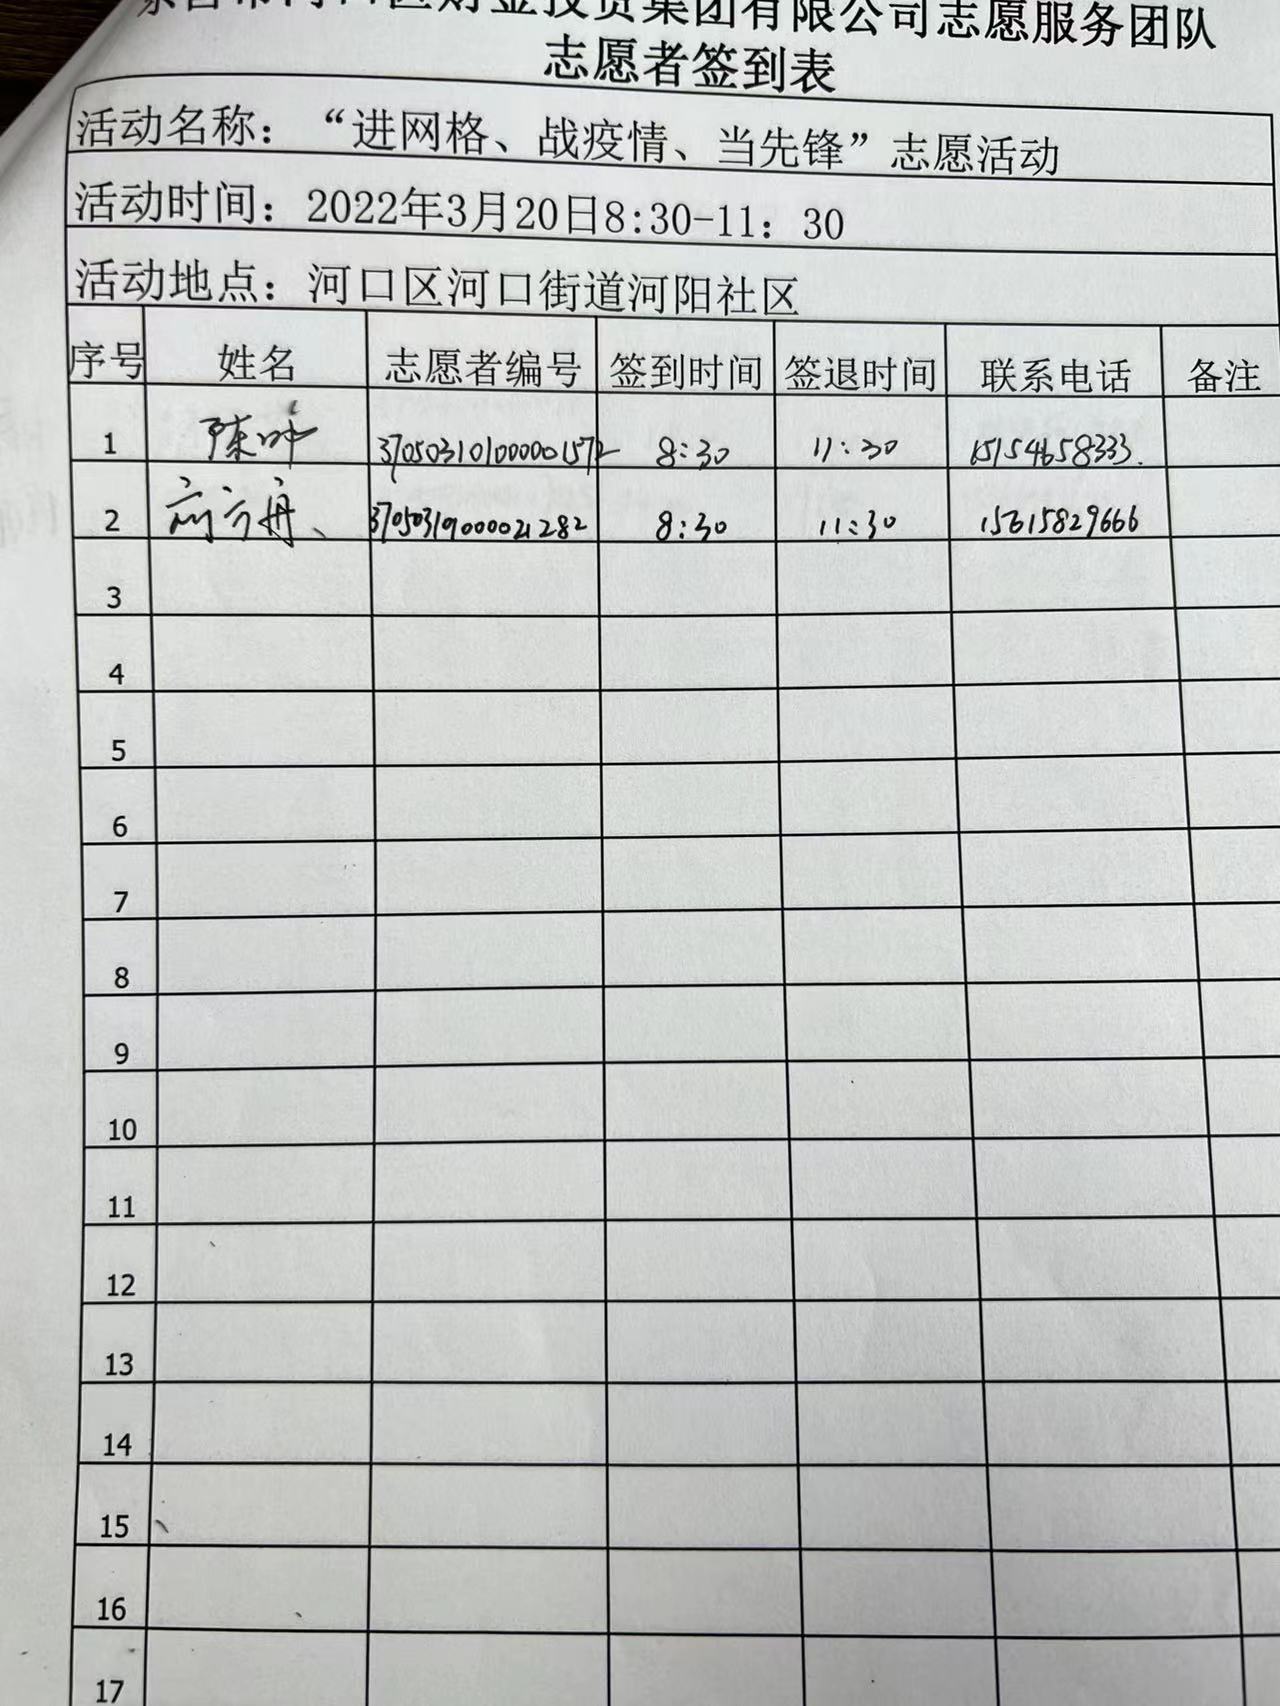 东营市河口区财金投资集团有限公司志愿服务团队
志愿者签到表
活动名称：“进网格、战疫情、当先锋”志愿活动
活动时间：2022年3月20日8:30-11：30
活动地点：河口区河口街道河阳社区
序号 姓名 志愿者编号 签到时间 签退时间 联系电话 备注
1 陈 370503101000001572 8:30 11:30 15154658333.
2 8:30 11:30 15615829666
3
4
5
6
7
8
9
10
11
12
13
14
15
16
17